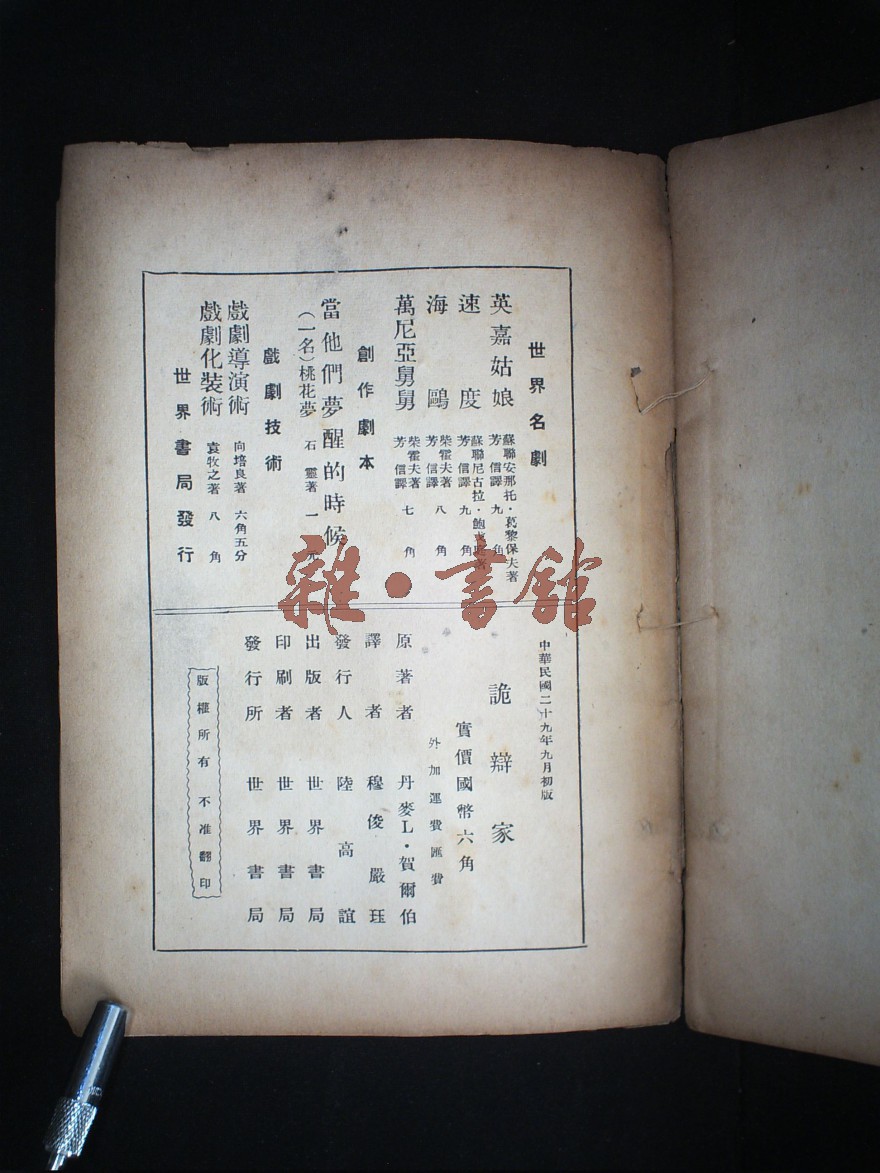 世界名劇
英嘉姑娘 蘇聯安那托·葛黎保夫著 芳信譯 九角
速度 蘇聯尼古拉·鮑 著 芳信譯 九角
海鷗 柴霍夫著 芳信譯 八角
萬尼亞舅舅 柴霍夫著 芳信譯 七角
創作劇本
當他們夢醒的時候
(一名)桃花夢 石靈著 一元
戲劇技術
戲劇導演術 向培良著 六角五分
戲劇化裝術 袁牧之著 八角
世界書局發行
中華民國二十九年九月初版
詭辯家
實價國幣六角
外加運費匯費
原著者 丹麥L·賀爾伯
譯者 穆俊 嚴珏
發行人 陸高誼
出版者 世界書局
印刷者 世界書局
發行所 世界書局
版權所有 不准翻印
雜·書館